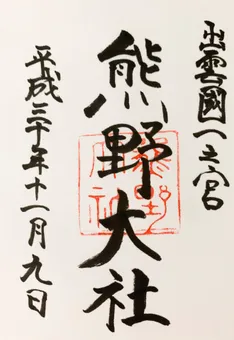 出雲國一之宮
熊野大社
平成三十年十一月九日
熊野大社